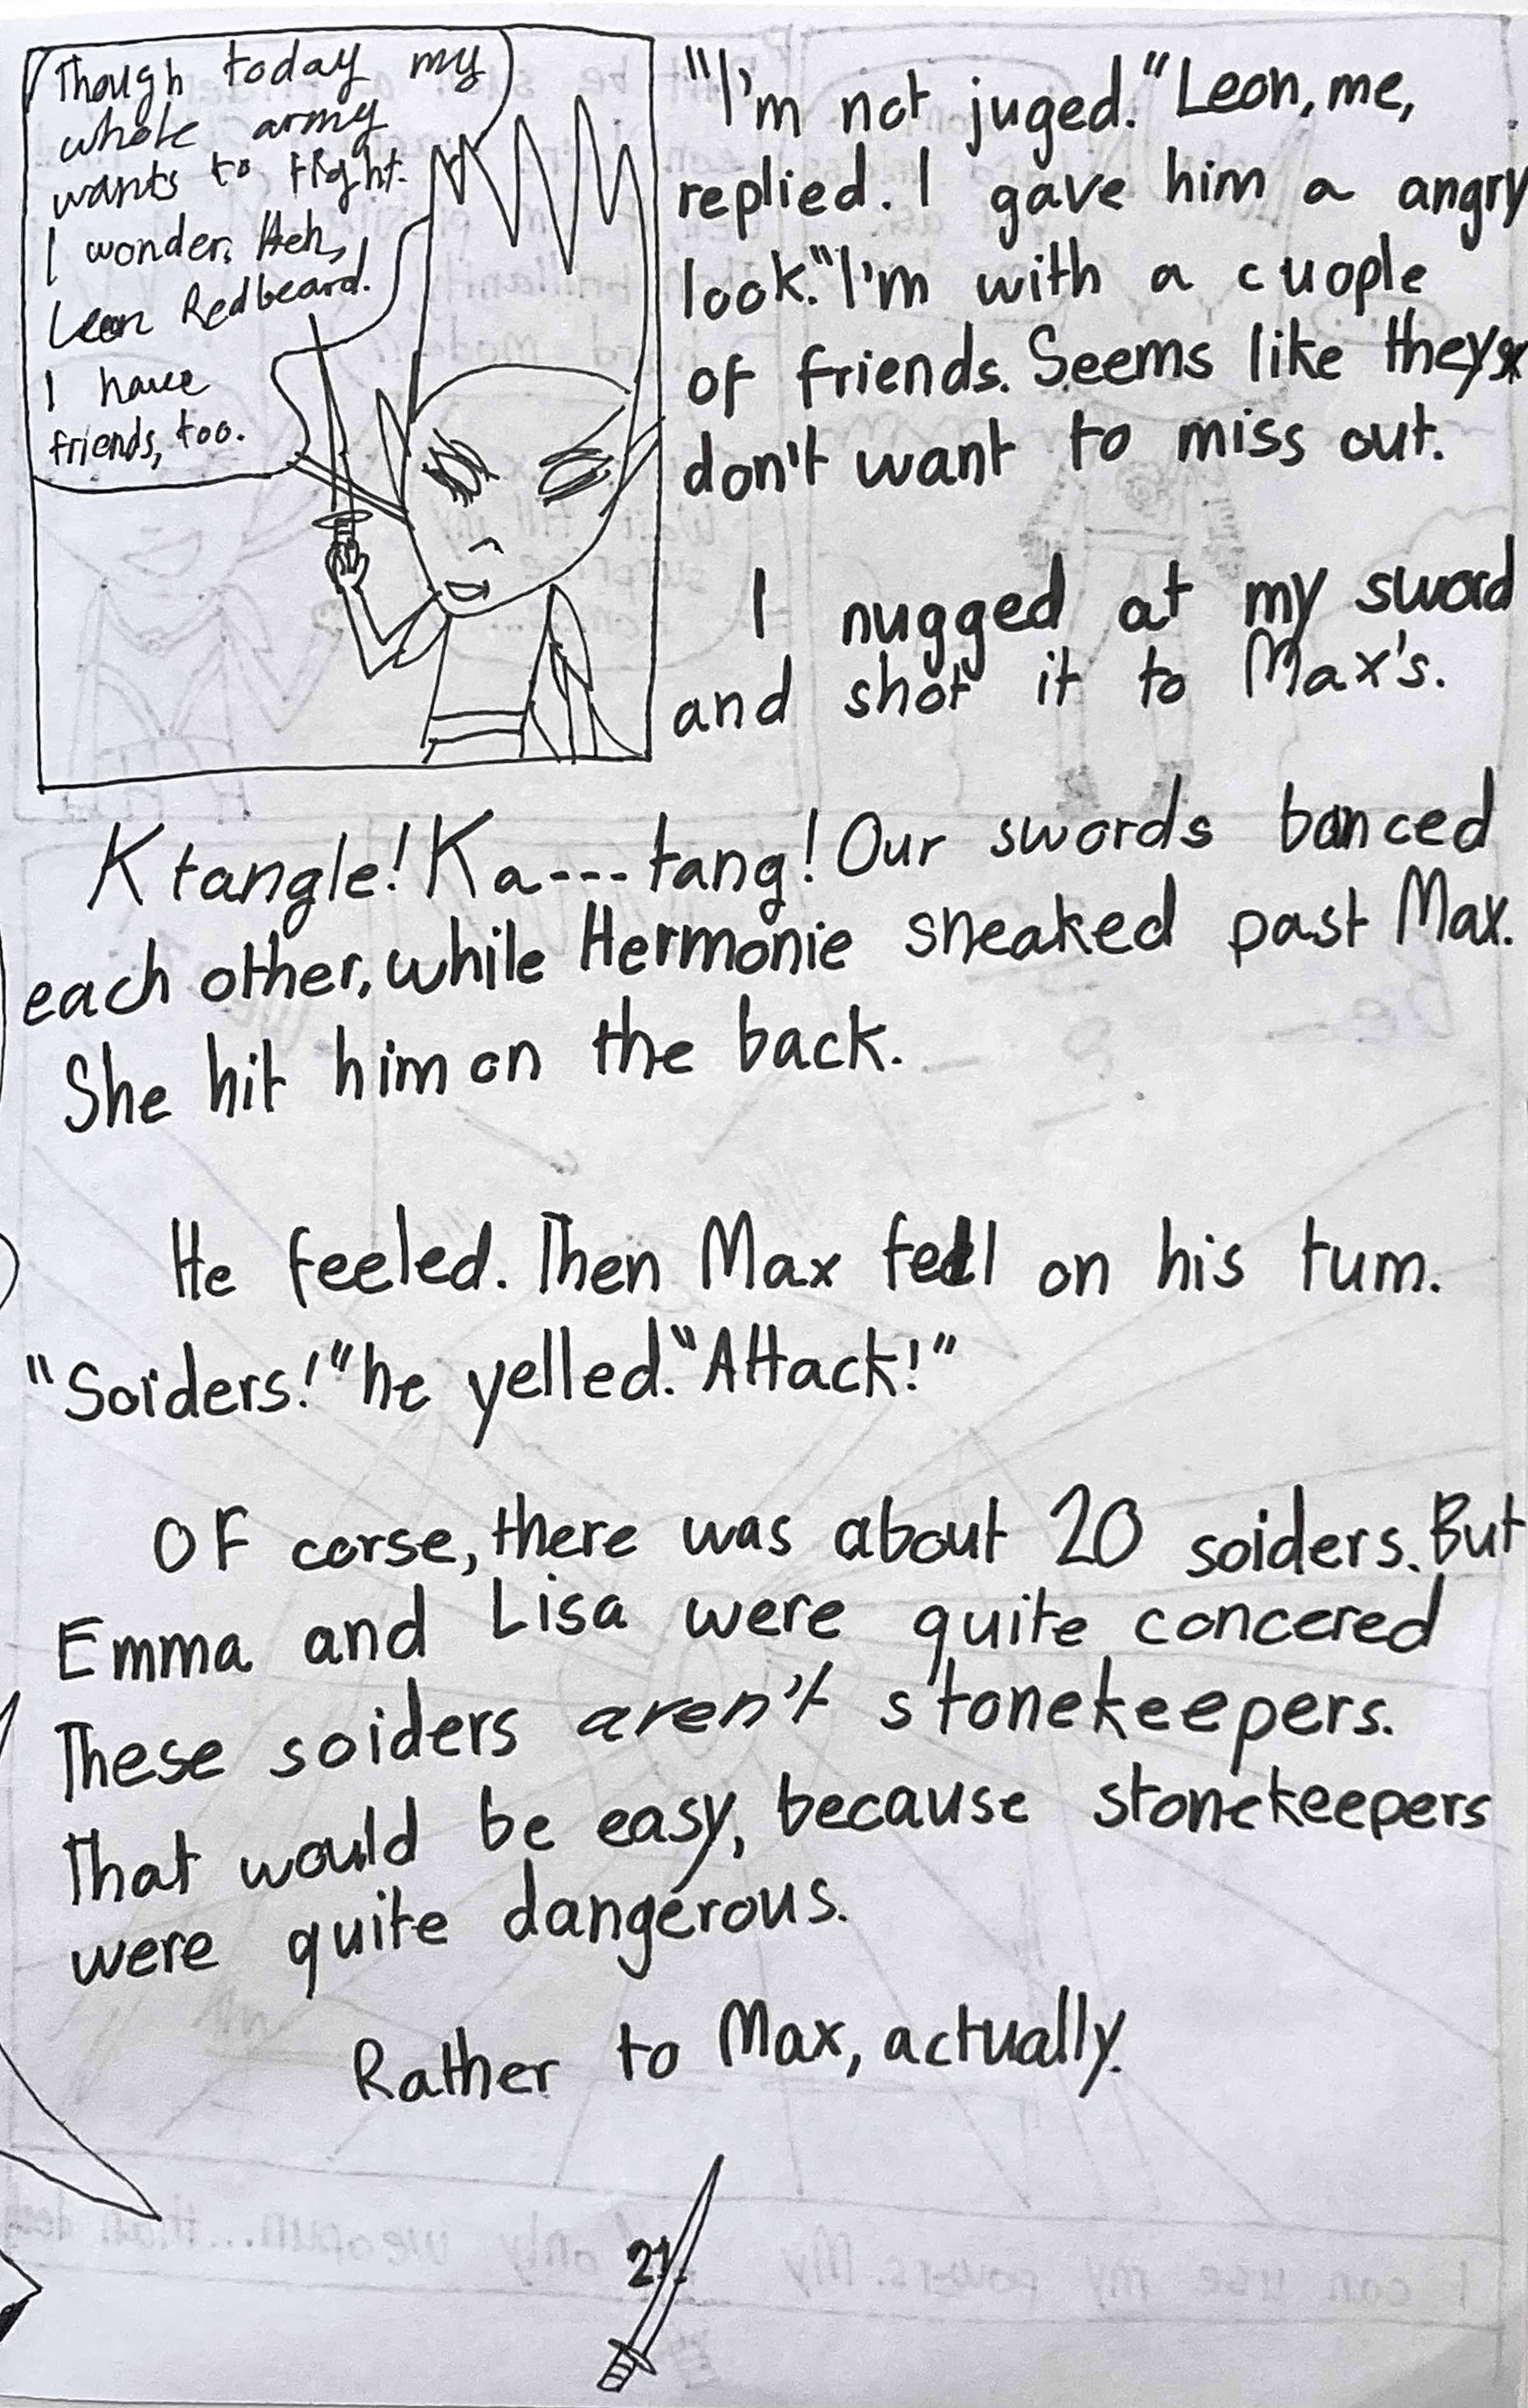 Though today my
whole army
wants to fight.
I wonder. Heh,
Leon Redbeard.
I have
friends, too.
"I'm not juged." Leon, me,
replied. I gave him a angry
look. "I'm with a cuople
of friends. Seems like they
don't want to miss out.
I nugged at my sword
and shot it to Max's.
Ktangle! Ka---tang! Our swords banced
each other, while Hermonie sneaked past Max.
She hit him on the back.
He feeled. Then Max fell on his tum.
"Soiders!" he yelled. "Attack!"
Of corse, there was about 20 soiders. But
Emma and Lisa were quite concered
These soiders aren't stonekeepers.
That would be easy, because stonekeepers
were quite dangerous.
Rather to Max, actually.
21.